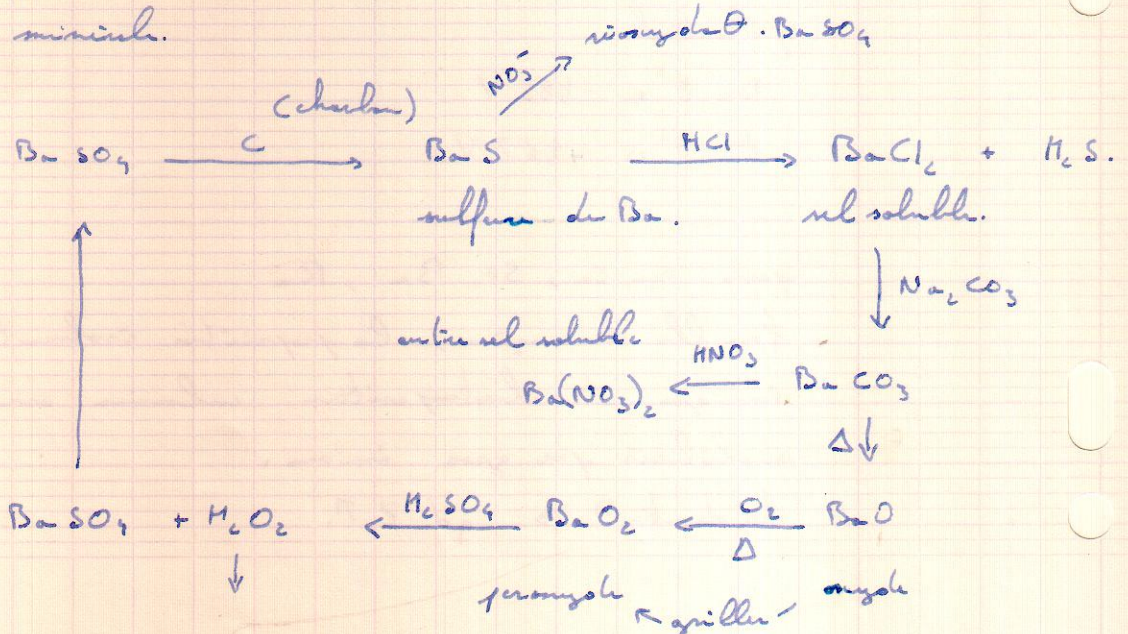 minérale. réoxyde θ. BaSO4
NO3-
(charbon)
BaSO4 C BaS HCl BaCl2 + H2S.
sulfure de Ba. sel soluble.
Na2CO3
autre sel soluble HNO3
Ba(NO3)2 BaCO3
Δ
BaSO4 + H2O2 H2SO4 BaO2 O2 BaO
Δ
peroxyde griller oxyde